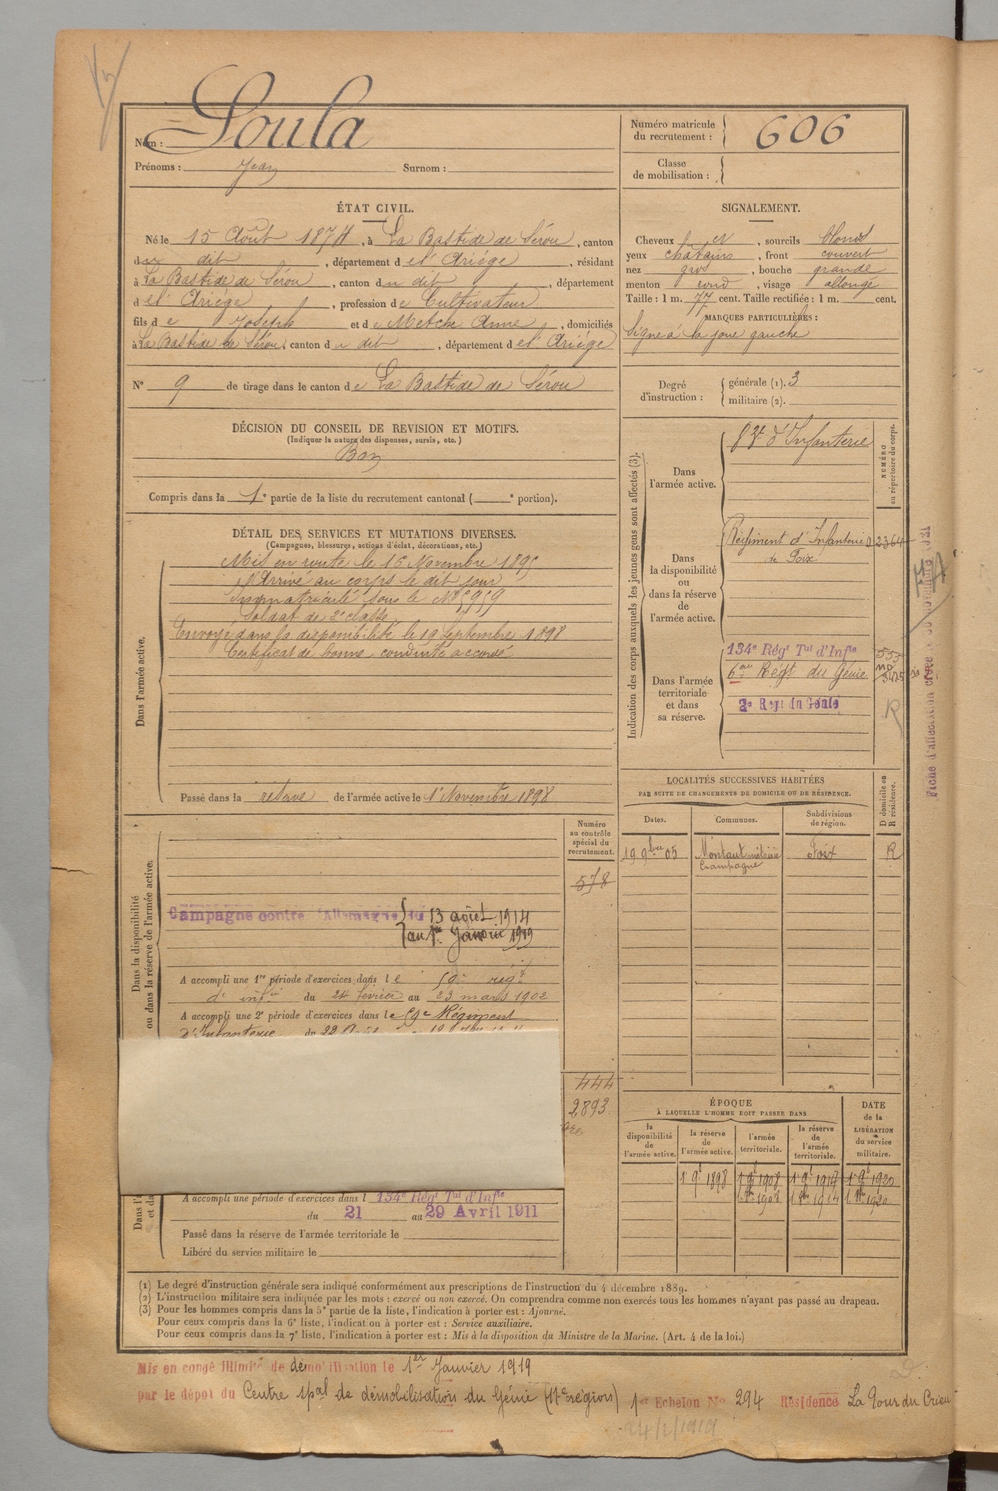 Nom : Soula
Prénoms : Jean Surnom :
Numéro matricule du recrutement : 606
Classe de mobilisation :
ÉTAT CIVIL.
Né le 15 Août 1874, à La Bastide de Sérou, canton
du dit, département de l'Ariège, résidant
à La Bastide de Sérou, canton du dit, département
de l'Ariège, profession de Cultivateur
fils de Joseph et de Anne, domiciliés
à La Bastide de Sérou, canton du dit, département de l'Ariège
N° 9 de tirage dans le canton de La Bastide de Sérou
SIGNALEMENT.
Cheveux, sourcils blonds
yeux chatains, front couvert
nez gros, bouche grande
menton rond, visage allongé
Taille : 1 m. 77 cent. Taille rectifiée : 1 m. cent.
MARQUES PARTICULIÈRES :
Signe à la joue gauche
Degré d'instruction : générale (1). 3
militaire (2).
DÉCISION DU CONSEIL DE REVISION ET MOTIFS.
(Indiquer la nature des dispenses, sursis, etc.)
Bon
Compris dans la 1e partie de la liste du recrutement cantonal ( e portion).
DÉTAIL DES SERVICES ET MUTATIONS DIVERSES.
(Campagnes, blessures, actions d'éclat, décorations, etc.)
Dans l'armée active.
Mis en route le 16 Novembre 1895
Arrivé au corps le dit jour
Immatriculé sous le N°
Soldat de 2e classe
Envoyé dans la disponibilité le 19 Septembre 1898
Certificat de bonne conduite accordé
Passé dans la réserve de l'armée active le 1er Novembre 1898
Dans la disponibilité ou dans la réserve de l'armée active.
Numéro au contrôle spécial du recrutement.
578
Campagne contre l'Allemagne du 13 août 1914
au 1er Janvier 1919
A accompli une 1re période d'exercices dans le 59e régt
d'infie du 24 février au 23 mars 1902
A accompli une 2e période d'exercices dans le 59e Régiment
D'Infanterie du 22
444
2893
A accompli une période d'exercices dans l 134e Régt Tal d'Infie
du 21 au 29 Avril 1911
Passé dans la réserve de l'armée territoriale le
Libéré du service militaire le
Indication des corps auxquels les jeunes gens sont affectés (3).
NUMÉRO au répertoire du corps.
Dans l'armée active.
d'Infanterie
Dans la disponibilité ou dans la réserve de l'armée active.
Régiment d'Infanterie 02364
de Foix
Dans l'armée territoriale et dans sa réserve.
134e Régt Tal d'Infie
6me Régt du Génie
2e Régt du Génie
R
LOCALITÉS SUCCESSIVES HABITÉES
PAR SUITE DE CHANGEMENTS DE DOMICILE OU DE RÉSIDENCE.
Dates. Communes. Subdivisions de région. D domicile ou R résidence.
19 9bre 05 Montaut Foix R
Campagne
ÉPOQUE
À LAQUELLE L'HOMME DOIT PASSER DANS
DATE de la LIBÉRATION du service militaire.
la disponibilité de l'armée active. la réserve de l'armée active. l'armée territoriale. la réserve de l'armée territoriale.
1 9t 1898 1 9t 1908 1 9t 1914 1 9t 1920
(1) Le degré d'instruction générale sera indiqué conformément aux prescriptions de l'instruction du 4 décembre 1889.
(2) L'instruction militaire sera indiquée par les mots : exercé ou non exercé. On comprendra comme non exercés tous les hommes n'ayant pas passé au drapeau.
(3) Pour les hommes compris dans la 5e partie de la liste, l'indication à porter est : Ajourné.
Pour ceux compris dans la 6e liste, l'indication à porter est : Service auxiliaire.
Pour ceux compris dans la 7e liste, l'indication à porter est : Mis à la disposition du Ministre de la Marine. (Art. 4 de la loi.)
Mis en congé illimité de démobilisation le 1er Janvier 1919
par le dépôt du Centre spal de démobilisation du Génie (17e région) 1er Echelon No 294 Résidence La Tour du Crieu
24/2/1919